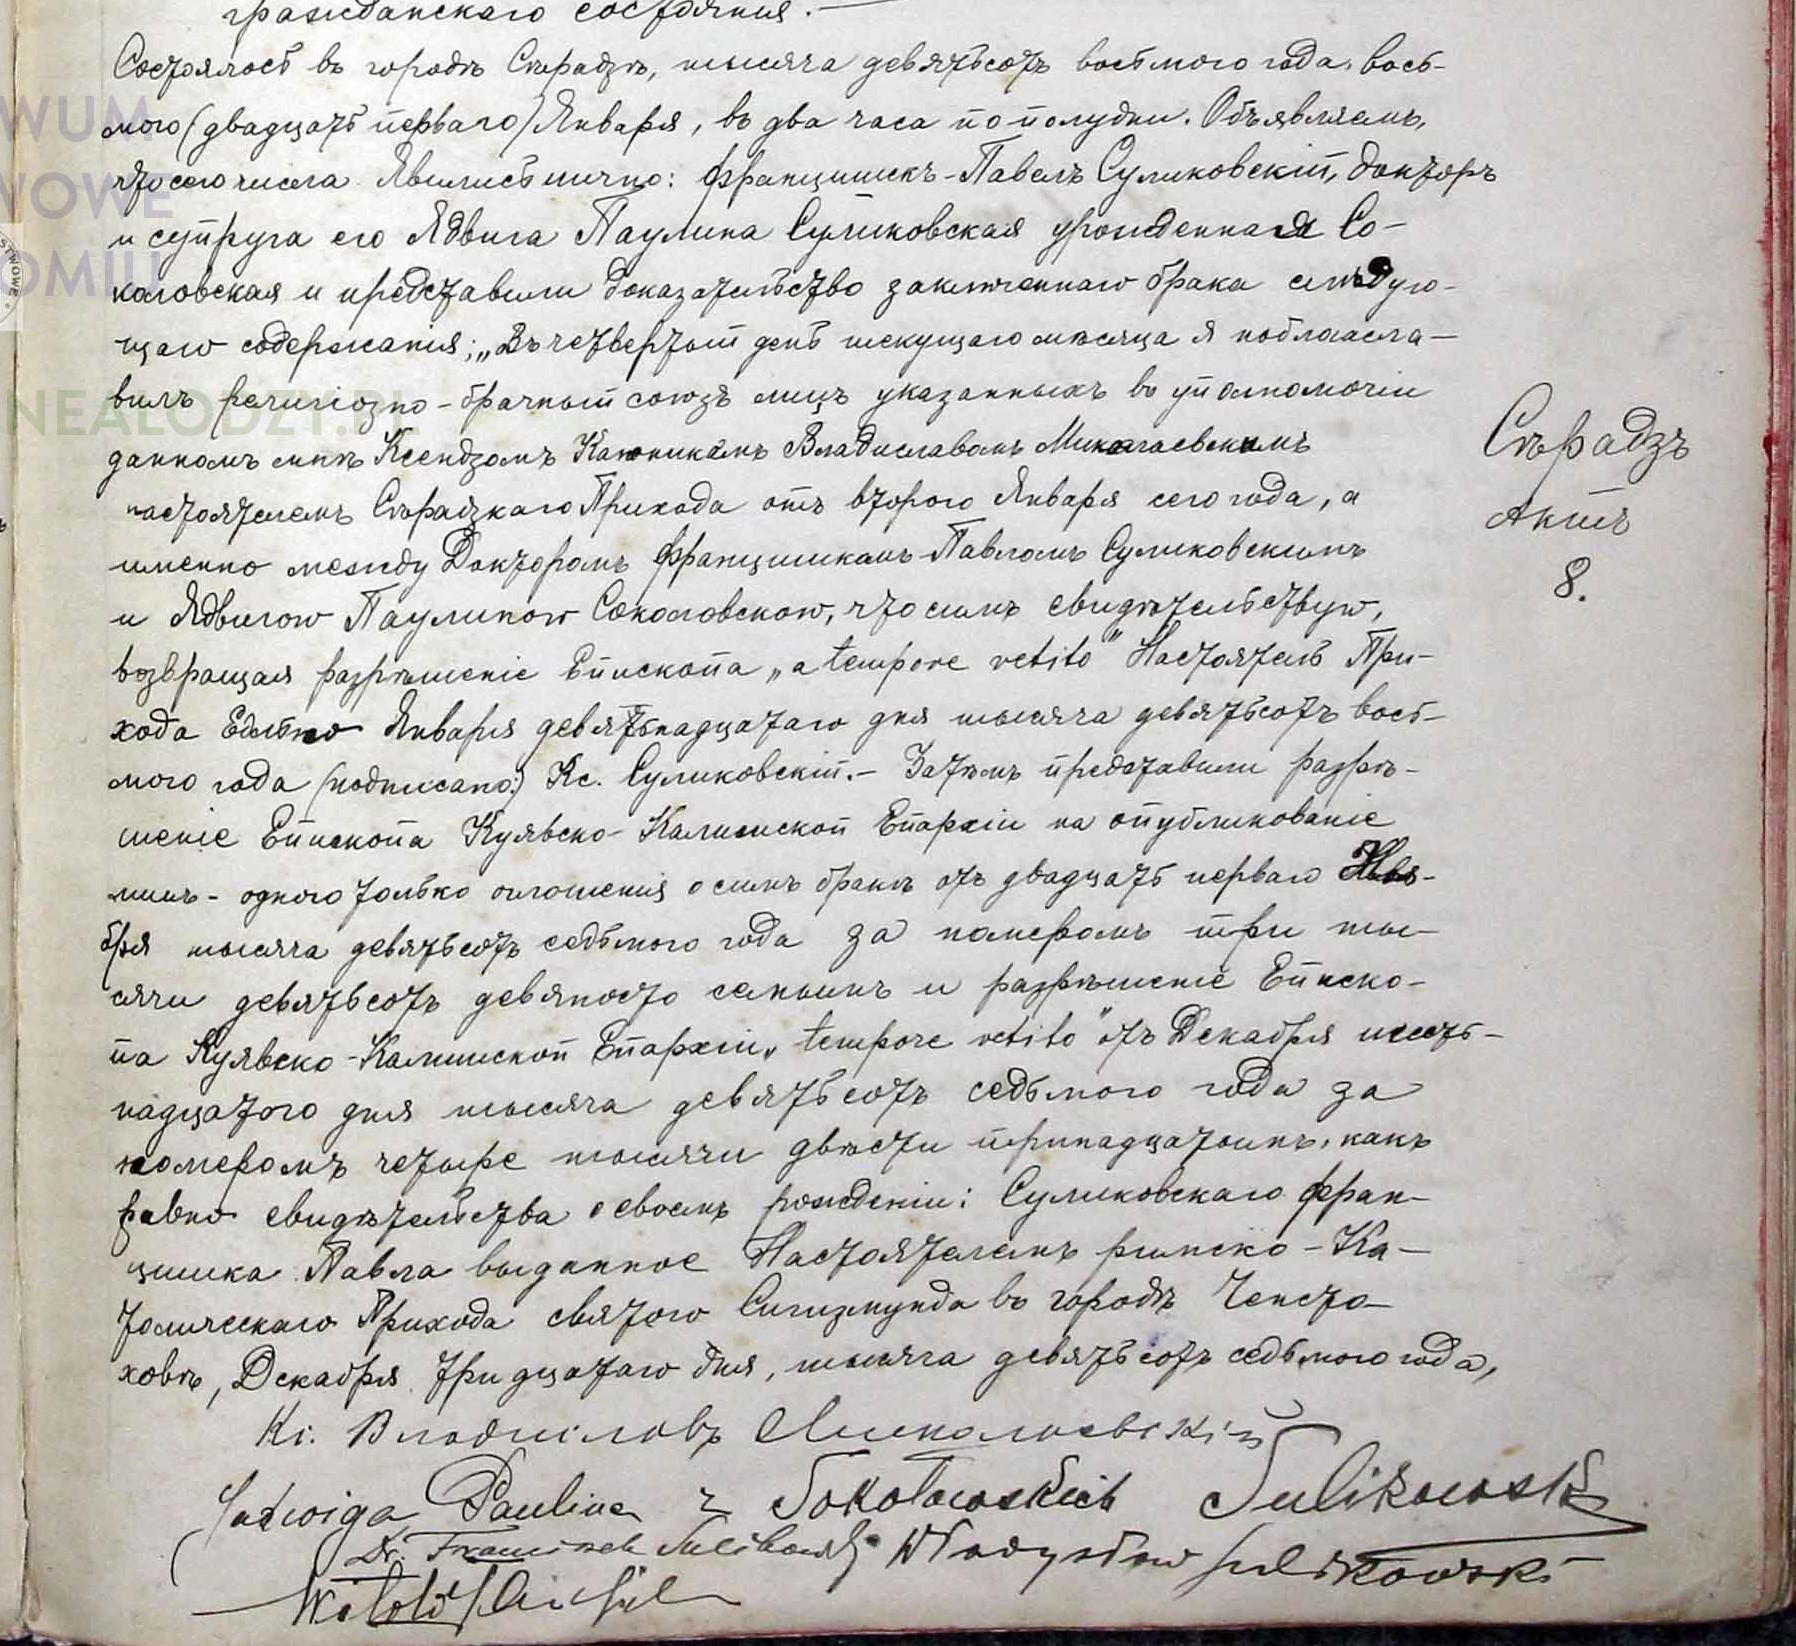 гражданскаго состоянія.—
Состоялось въ городѣ Сѣрадзѣ, тысяча девятьсотъ восьмого года, вось-
мого (двадцать перваго) Января, въ два часа по полудни. Объявляемъ,
что сего числа явились лично: Францишекъ-Павелъ Суликовскій, докторъ
и супруга его Ядвига Паулина Суликовская урожденная Со-
коловская и представили доказательство заключеннаго брака слѣдую-
щаго содержанія: „Въ четвертый день текущаго мѣсяца я поблагосла-
вилъ религіозно-брачный союзъ лицъ указанныхъ въ уполномочіи
данномъ мнѣ Ксендзомъ Каноникомъ Владиславомъ Миколаевскимъ
настоятелемъ Сѣрадзкаго Прихода отъ второго Января сего года, а
именно между Докторомъ Францишкомъ-Павломъ Суликовскимъ
и Ядвигою Паулиною Соколовскою, что симъ свидѣтельствую,
возвращая разрѣшеніе Епископа „a tempore vetito" Настоятель При-
хода Января девятьнадцатаго дня тысяча девятьсотъ вось-
мого года (подписано:) Кс. Суликовскій.— Затѣмъ представили разрѣ-
шеніе Епископа Куявско-Калишской Епархіи на опубликованіе
лишь-одного только оглошенія о семъ бракѣ отъ двадцать перваго Ноя-
бря тысяча девятьсотъ седьмого года за номеромъ три ты-
сячи девятьсотъ девяносто семымъ и разрѣшеніе Еписко-
па Куявско-Калишской Епархіи „tempore vetito" отъ Декабря шесть-
надцатого дня тысяча девятьсотъ седьмого года за
номеромъ четыре тысячи двѣсти тринадцатымъ, какъ
равно свидѣтельства о своемъ рожденіи: Суликовскаго Фран-
цишка Павла выданное Настоятелемъ римско-Ка-
толическаго Прихода святого Сигизмунда въ городѣ Ченсто-
ховѣ, Декабря тридцатаго дня, тысяча девятьсотъ седьмого года,
Сѣрадзъ
Актъ
8.
Кс. Владиславъ Миколаевскій
Jadwiga Paulina z Sokołowskich Sulikowska
Dr. Franciszek Sulikowski Władysław Sulikowski
Witold
WUM
WOWE
OMIU
NEALODZY.PL